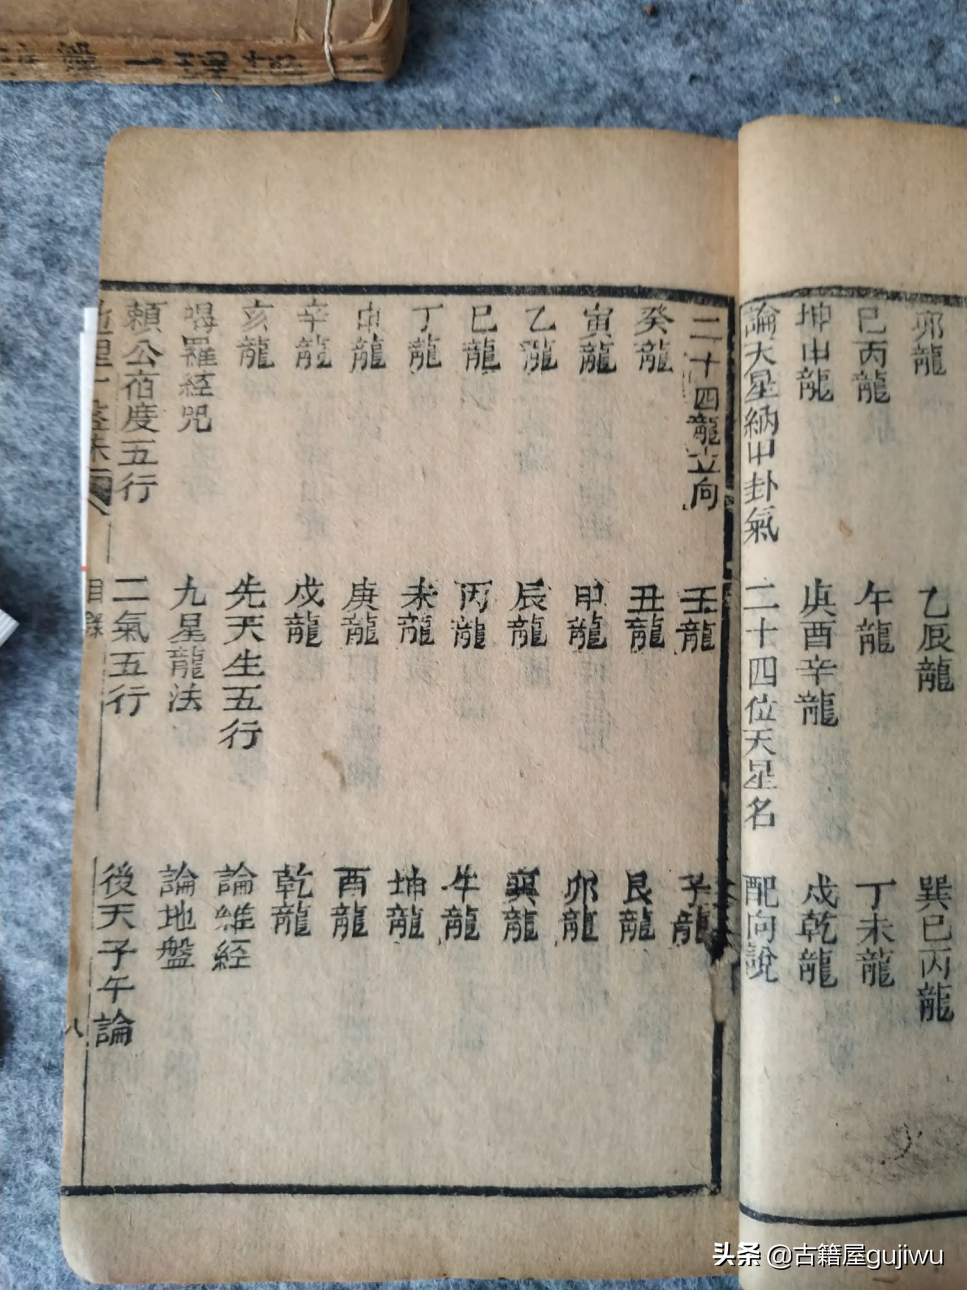 卯龍 乙辰龍 巽巳丙龍
巳丙龍 午龍 丁未龍
坤申龍 庚酉辛龍 戌乾龍
論天星納甲卦氣 二十四位天星名 配向說
二十四龍立向 壬龍 子龍
癸龍 丑龍 艮龍
寅龍 甲龍 卯龍
乙龍 辰龍 巽龍
巳龍 丙龍 午龍
丁龍 未龍 坤龍
申龍 庚龍 酉龍
辛龍 戌龍 乾龍
亥龍 先天生五行 論經
喝羅經咒 九星龍法 論地盤
賴公宿度五行 二氣五行 後天子午論
目錄 八
头条 @古籍屋gujiwu